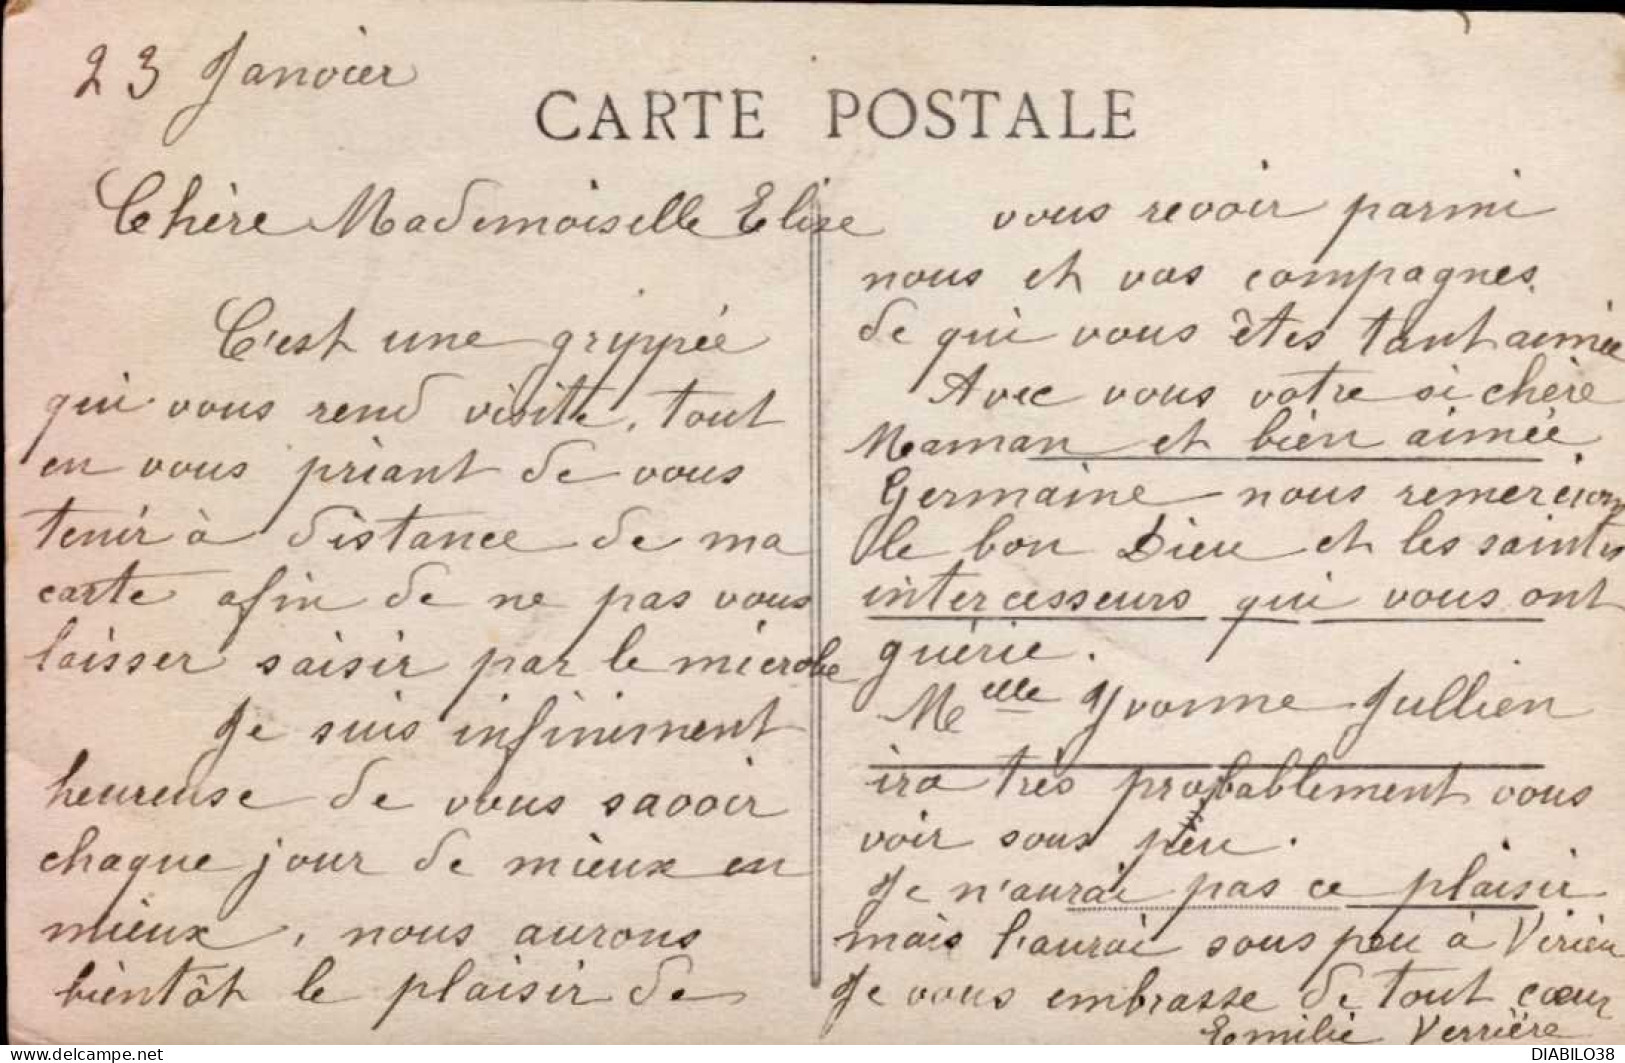 23 Janvier
CARTE POSTALE
Chère Mademoiselle Elise
C'est une grippée
qui vous rend visite, tout
en vous priant de vous
tenir à distance de ma
carte afin de ne pas vous
laisser saisir par le microbe
Je suis infiniment
heureuse de vous savoir
chaque jour de mieux en
mieux, nous aurons
bientôt le plaisir de
vous revoir parmi
nous et vos compagnes
de qui vous êtes tant aimée
Avec vous votre si chère
Maman et bien aimée
Germaine nous remercions
le bon Dieu et les saints
intercesseurs qui vous ont
guérie.
Melle Yvonne Jullien
ira très probablement vous
voir sous peu.
Je n'aurai pas ce plaisir
mais l'aurai sous peu à Virieu
Je vous embrasse de tout cœur
Emilie Verrière
DIABILO38